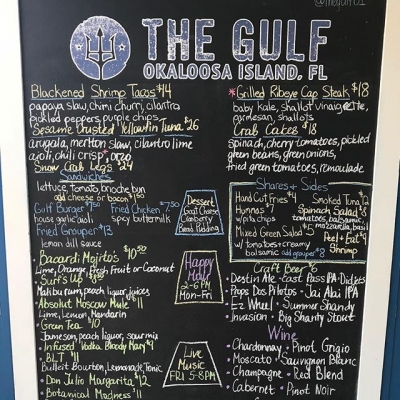 @thegulf01
THE GULF
OKALOOSA ISLAND, FL
Blackened Shrimp Tacos $14
papaya slaw, chimi churri, cilantro
pickled peppers, purple chips
Sesame Crusted Yellowfin Tuna $26
arugala, merliton slaw, cilantro lime
aioli, chili crisp, orzo
Snow Crab Legs $24
Sandwiches
lettuce, tomato, brioche bun
add cheese or bacon $1.50
Gulf Burger $7.50 Fried Chicken $7.50
house garlic aioli spicy buttermilk
Fried Grouper $13
lemon dill sauce
Bacardi Mojitos $10.50
Lime, Orange, Fresh Fruit or Coconut
Surf's Up $8.50
Malibu rum, peach liquor, juices
Absolut Moscow Mule $11
Lime, Lemon, Mandarin
Green Tea $10
Jameson, peach liquor, sour mix
Infused Vodka Bloody Mary $9
BLT $11
Bulleit Bourbon, Lemonade, Tonic
Don Julio Margarita $12
Botanical Madness $11
Dessert
Goat Cheese
Cranberry
Bread Pudding
Happy
Hour
2-6 PM
Mon-Fri
Live
Music
FRI 5-8PM
*Grilled Ribeye Cap Steak $18
baby kale, shallot vinaigrette,
parmesan, shallots
Crab Cakes $18
spinach, cherry tomatoes, pickled
green beans, green onions,
fried green tomatoes, remoulade
Shares + Sides
Hand Cut Fries $4
Hummus $7
w/pita chips
Mixed Green Salad $5
w/tomatoes + creamy
balsamic add grouper $8
Smoked Tuna $12
Spinach Salad $8
tomatoes, balsamic,
mozzarella, basil
Peel + Eat $9
Shrimp
Craft Beer $6
Destin Ale - East Pass IPA - Didjits
Props Dos Pilotos - Jai Alai IPA
Ez Wheel - Summer Shandy
Invasion - Big Shanty Stout
Wine
Chardonnay - Pinot Grigio
Moscato - Sauvignon Blanc
Champagne - Red Blend
Cabernet - Pinot Noir